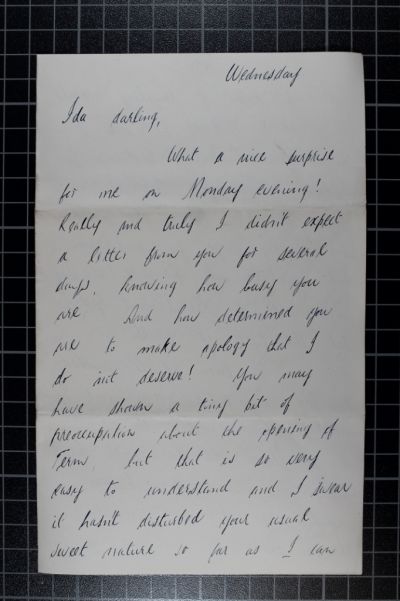 Wednesday
Ida darling,
What a nice surprise
for me on Monday evening!
Really and truly I didn't expect
a letter from you for several
days, knowing how busy you
are. And how determined you
are to make apology that I
do not deserve! You may
have shown a tiny bit of
preoccupation about the opening of
Term, but that is so very
easy to understand and I swear
it hasn't disturbed your usual
sweet nature so far as I can